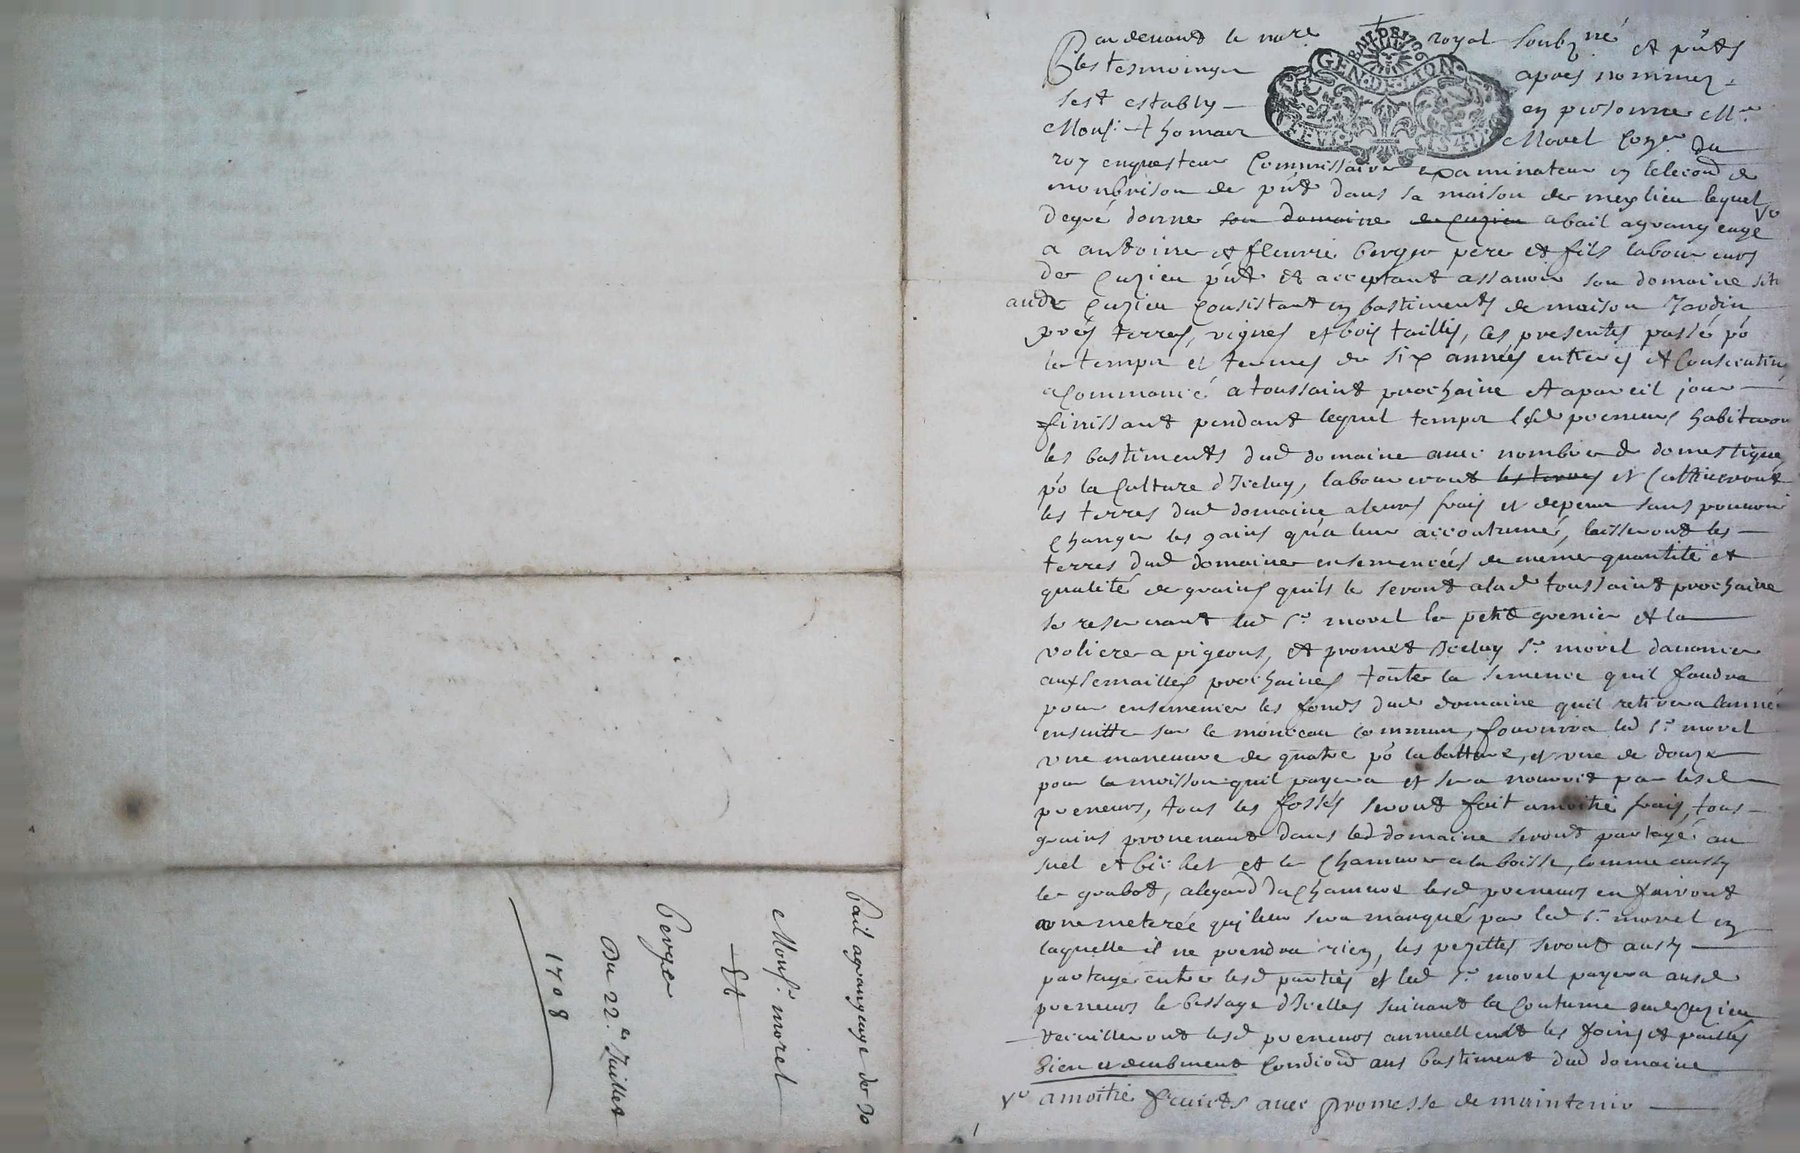 Par devant le no.re royal soubz.né et pñts
les tesmoings apres nommez
sest estably en personne M.re
Mons.r thomas Morel Con.er du
roy enquesteur Commissaire examinateur en lelection de
monbrison de pñt dans sa maison de meylieu lequel
de gré donne son domaine de Cuzieu a bail agrangeage
a antoine et fleurie berger pere et fils laboureurs
de Cuzieu pñt et acceptant assavoir son domaine sit
aud Cuzieu Consistant en bastiments de maison Jardin
prés terres, vignes et bois taillis, les presentes passé po
le temps et termes de six années entieres et Consecutiv
a Commancé a toussaint prochaine et a pareil jour
finissant pendant lequel temps lesd preneurs habiteron
les bastiments dud domaine avec nombre de domestique
po la Culture d'Iceluy, laboureront les terres et Cultiveront
les terres dud domaine a leurs frais et depens sans pouvoir
Changer les gains qu'a leur accoutumé, laisseront les
terres dud domaine ensemencées de même quantité et
qualité de grains quils le seront a lad toussaint prochaine
se reservant led s.r morel le petit grenier et la
voliere a pigeons, et promet Iceluy s.r morel d'avancer
aux semailles prochaines toute la semence quil faudra
pour ensemencer les fonds dud domaine quil retirera lanné
ensuitte sur le monceau commun, fournira led s.r morel
une maneuvre de quatre po la batture, et une de douze
pour la moisson quil payera et sera nourrie par lesd
preneurs, tous les fossés seront fait a moitie frais, tous
grains provenant dans led domaine seront partagé au
suel et bichet et le Chanvre a la boisse, comme aussy
le grabot, a legard du Chanvre lesd preneurs en fairont
une meterée qui leur sera marqué par led s.r morel en
laquelle il ne prendra rien, les pezettes seront aussy
partagé entre lesd parties et led s.r morel payera ausd
preneurs le bessage d'Icelles suivant la Coutume dud Cuzieu
recuilleront lesd preneurs annuellemt les foins et pailles
bien et deubment Condiond aus bastiment dud domaine
a moitie fruicts avec promesse de maintenir
bail agrangeage de do
Mons.r morel
Et
Berger
Du 22.e Juillet
1708